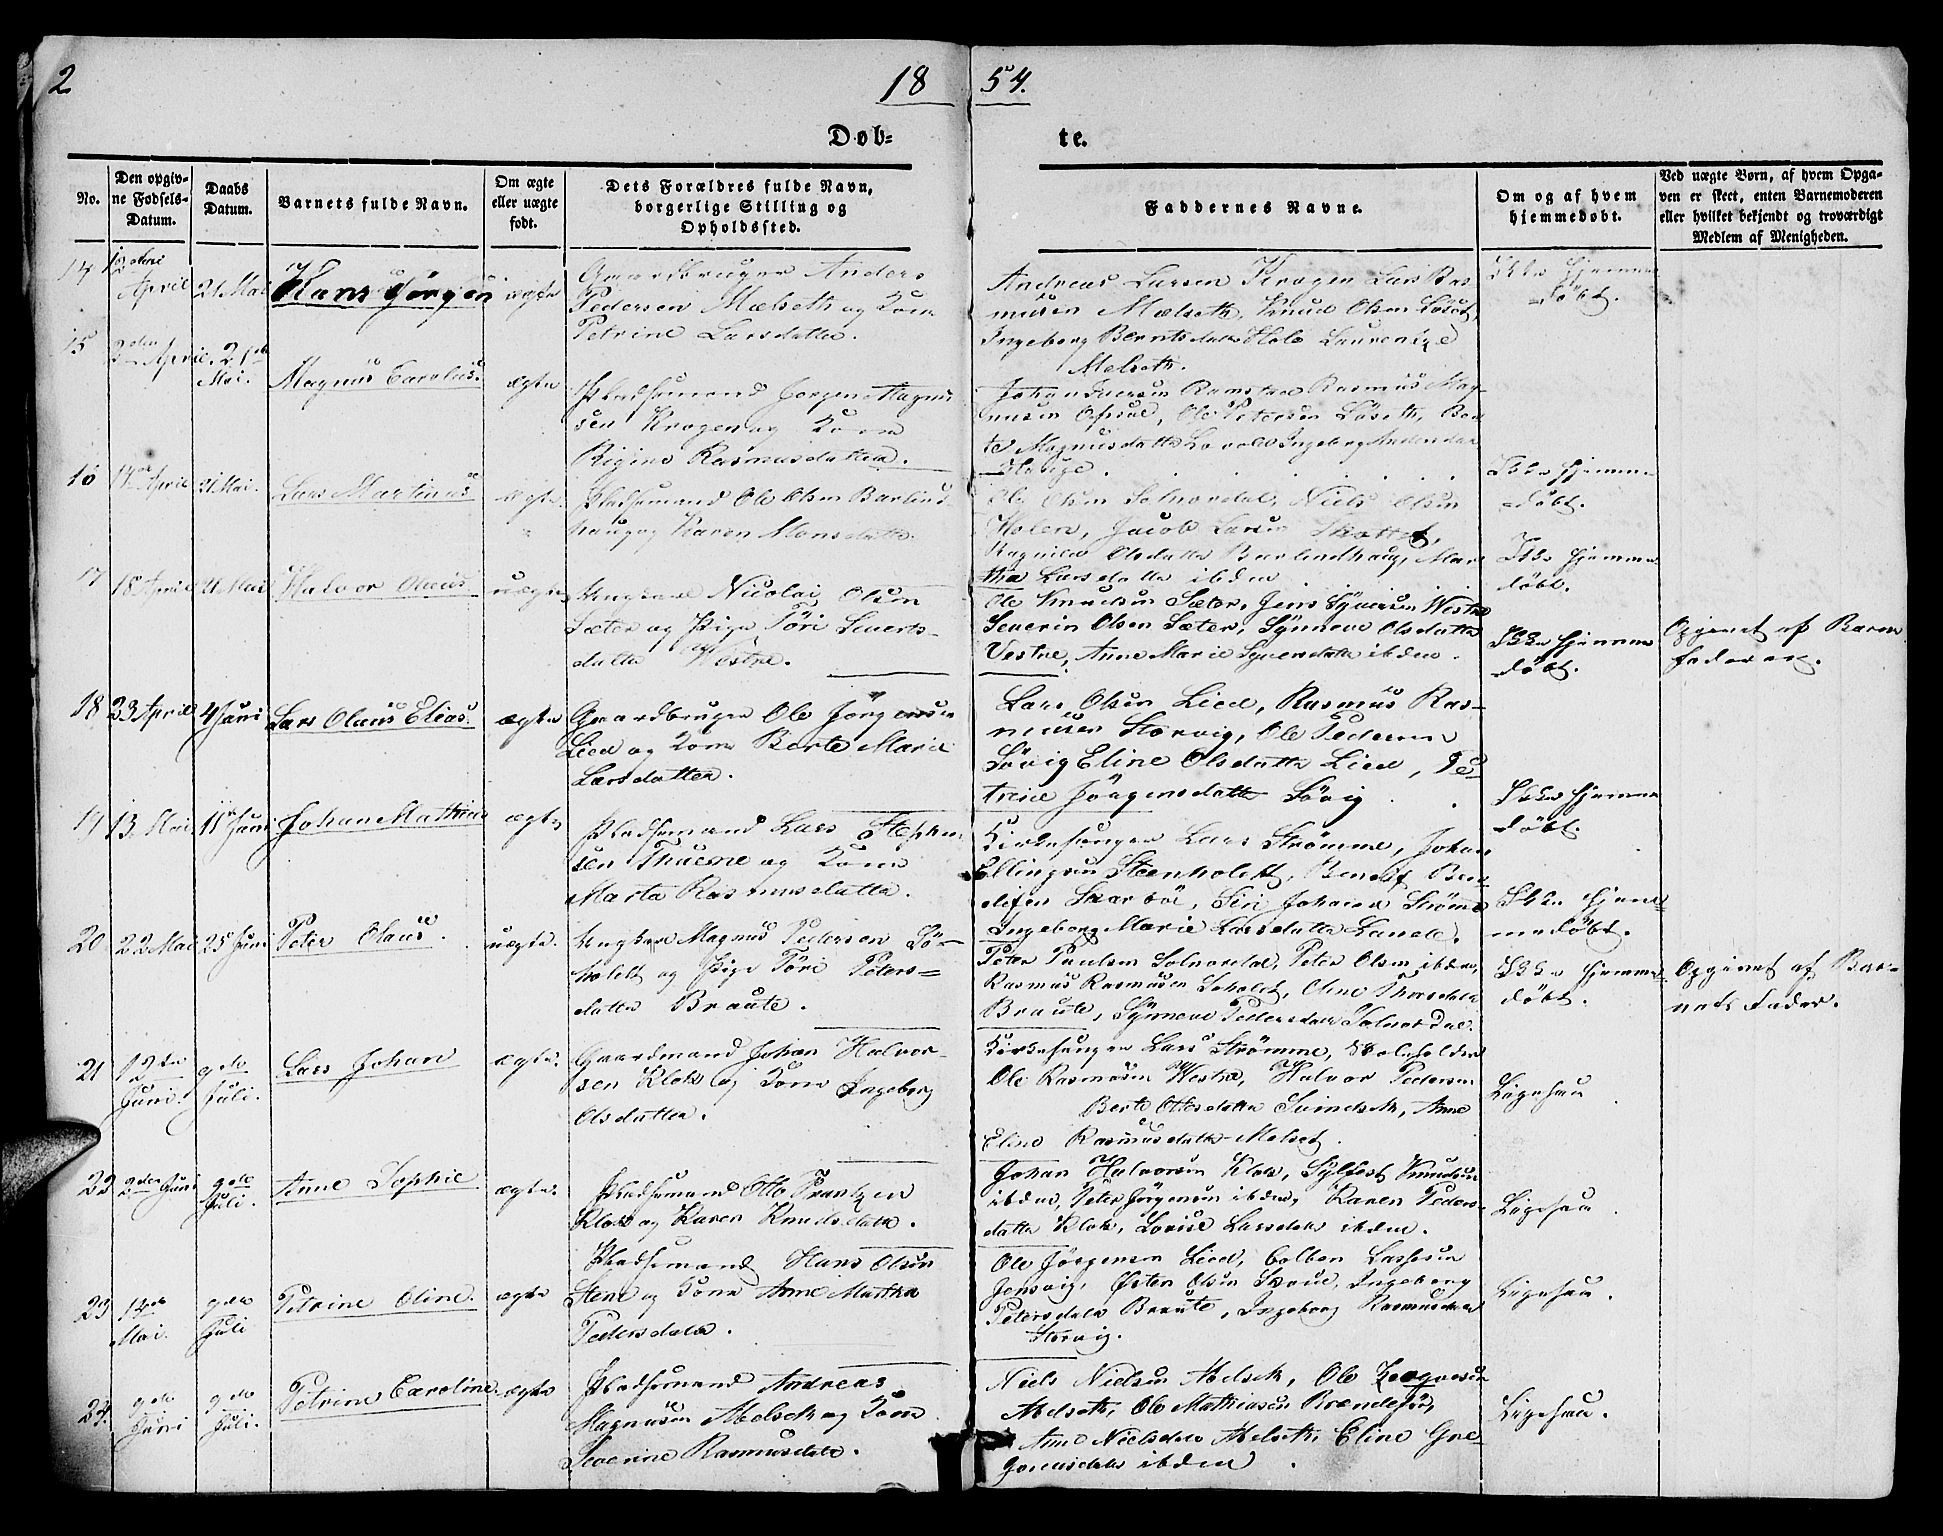 2
18 54.
Døb= te.
No.
Den opgiv=
ne Fødsels=
Datum.
Daabs
Datum.
Barnets fulde Navn.
Om ægte
eller uægte
født.
Dets Forældres fulde Navn,
borgerlige Stilling og
Opholdssted.
Faddernes Navne.
Om og af hvem
hjemmedøbt.
Ved uægte Børn, af hvem Opga=
ven er skeet, enten Barnemoderen
eller hvilket bekjendt og troværdigt
Medlem af Menigheden.
14
April
21 Mai
Hans Jørgen
ægte
Gaardbruger Anders
Pedersen Mælseth og Kone
Petrine Larsdatter.
Andreas Larsen Krogen Lars Ras
musen Mælseth, Knud Olsen Løset,
Ingeborg Berntsdatter Hole
Melseth.
Ikke hjemme
døbt.
15
April.
21de
Mai.
Magnus Carolus.
ægte
Pladsemand Jørgen Magnus
sen Krogen og Kone
Rigine Rasmusdatter.
Johan Iversen Rasmus Mag=
nusen Opsal, Ole Petersen Løseth, Ber
te Magnusdatter Ingeborg
Hauge.
Ikke hjemme
døbt.
16
April
21 Mai.
Lars Martinus
ægte.
Pladsemand Ole Olsen Barlind
haug og Karen Monsdatter.
Ole Olsen Solnordal, Niels Olsen
Holen, Jacob Larsen
Ragnild Olsdatter Barlindhaug, Mar
tha Larsdatter ibden
Ikke hjemme
døbt.
17
18 April
21 Mai
Halvor Olaus
uægte
Ungkarl Nicolai Olsen
Sæter og Pige Töri Siverts=
datter Westre.
Ole Knudsen Sæter, Jens Sjversen Westre
Severin Olsen Sæter, Sÿnneve Olsdatter
Vestre, Anne Marie Syversdatter ibden.
Ikke hjemme
døbt.
Opgivet af Barne
faderen.
18
23 April
4 Juni
Lars Olaus Elias.
ægte
Gaardbruger Ole Jørgensen
Lied og Kone Berte Marie
Larsdatter.
Lars Olsen Lied, Rasmus Ras=
musen Storvig, Ole Pedersen
Søvig Eline Olsdatter Lied, Pe=
trine Jørgensdatter Søvig.
Ikke hjemme
døbt.
19
13 Mai
11te Juni
Johan Mathias
ægte
Pladsemand Lars Stephen
sen Thuene og Kone
Marta Rasmusdatter.
Kirkesanger Lars Strømme, Johan
Ellingsen Steenholdt, Bendit Ben
ditsen Skarbøe, Siri Johanne Strømme
Ingeborg Marie Larsdatter Lande.
Ikke hjem=
medøbt.
20
22 Mai
25 Juni
Peter Olaus.
uægte.
Ungkarl Magnus Pedersen Sö=
holdt og Pige Töre Peters=
datter Braute.
Peter Paulsen Solnordal, Peter Olsen ibden,
Rasmus Rasmusen Soholdt, Oline
Braute, Sÿnneve Pedersdatter Solnordal.
Ikke hjemme
døbt.
Opgivet af Bar=
nets Fader.
21
Juni.
9de
Juli.
Lars Johan
ægte.
Gaardmand Johan Halvor=
sen Klok og Kone Ingeborg
Olsdatter.
Kirkesanger Lars Strømme, Skoleholder
Ole Rasmusen Westre, Halvor Pedersen
Berte Ottesdatter Svindseth, Anne
Eline Rasmusdatter Melset.
Ligesaa
22
Juni
9de
Juli.
Anne Sophie.
ægte.
Pladsemand Otto Frantzen
Klok og Karen Knudsdatter.
Johan Halvorsen Klok, Sylfest Knudsen
ibden, Peter Jörgensen ibden, Karen Peders=
datter Klok, Lovise Larsdatter ibden.
Ligesaa
23
14de
Mai.
9de
Juli
Petrine Oline.
ægte
Pladsemand Hans Olsen
Stene og Kone Anne Martha
Pedersdatter.
Ole Jörgensen Lied, Colben Lassesen
Jonsvig, Østen Olsen Skoue, Ingeborg
Petersdatter Braute, Ingeborg Rasmusdatter
Storvig.
Ligesaa.
24.
9de
Juni
9de
Juli.
Petrine Caroline.
ægte
Pladsemand Andreas
Magnusen Melseth og Kone
Severine Rasmusdatter.
Niels Nielsen Melseth, Ole
Melseth, Ole Mathiasen
Anne Nielsdatter Melseth, Eline Gre=
goriusdatter ibden.
Ligesaa.